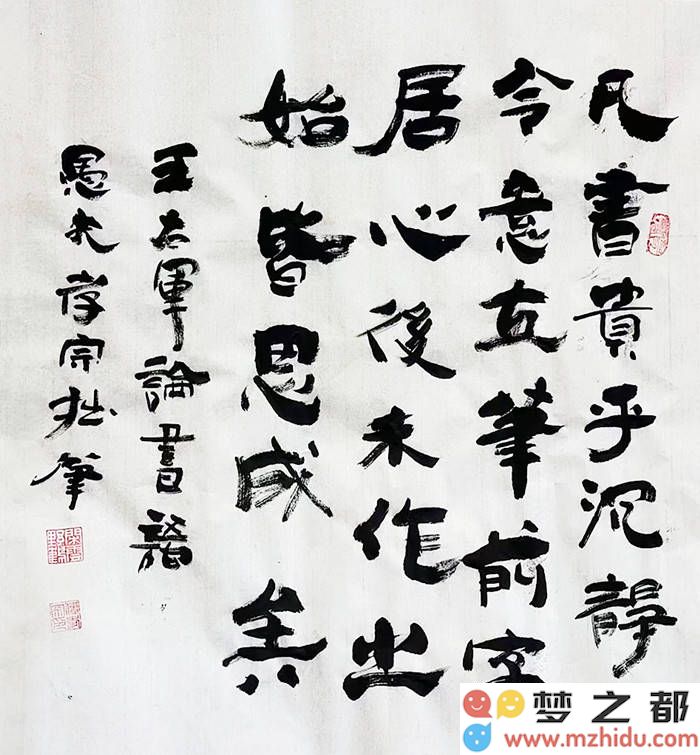 凡書貴乎沉靜
令意在筆前字
居心後未作之
始皆思成矣
王右軍論書語
愚夫宗拙筆
閑雲野鶴
梦之都
www.mzhidu.com